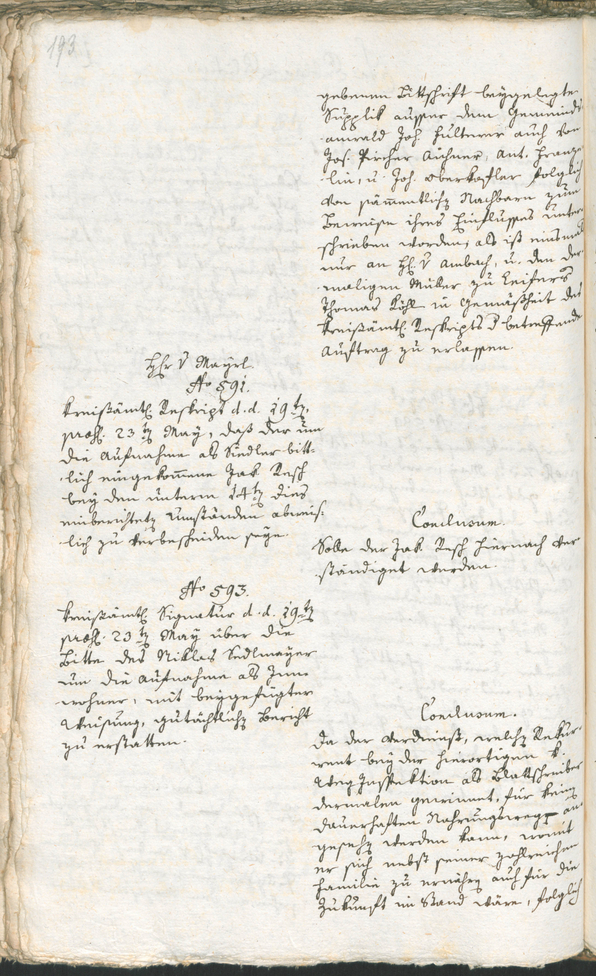 193
gebenen Bittschrift beygelegte
Supplik ausser dem Gemeinds
anwald Joh. Hulterer auch von
Jos. Pircher Aichner, Ant. Franze
lin, u. Joh. Oberkofler folglich
von sämmentlichen Nachbarn zum
Beweise ihres Einflusses unter
schrieben worden, als ist einsmal
nur an H. v Ambach, u. den der
maligen Müller zu Leifers
Thomas Köhl in Gemäßheit des
kreisämtl. Reskripts d. betreffende
Auftrag zu erlassen.
Hr v Mayrl
No 591.
Kreisämtl. Reskript d. d. 19ten,
praes. 23ten May, daß der um
die Aufnahme als Siedler bitt-
lich eingekommene Jak. Resch
bey den unterm 14ten dies
einberichteten Umständen abweis-
lich zu verbescheiden seye.
Conclusum.
Solle der Jak. Resch hiernach ver
ständiget werden.
No 593.
Kreisämtl. Signatur d. d. 19ten
praes. 23ten May über die
Bitte des Niklas Sedlmayer
um die Aufnahme als Inn-
wohner, mit beygefügter
Weisung, gutächtlichen Bericht
zu erstatten.
Conclusum.
Da der Verdienst, welchen Rekur-
rent bey der hierortigen k.
Weg Inspektion als Blattschreiber
dermalen gewinnet, für keinen
dauerhaften Nahrungsweg an
gesehen werden kann, womit
er sich nebst seiner zahlreichen
Familie zu ernähren auch für die
Zukunft im Stand wäre, folglich